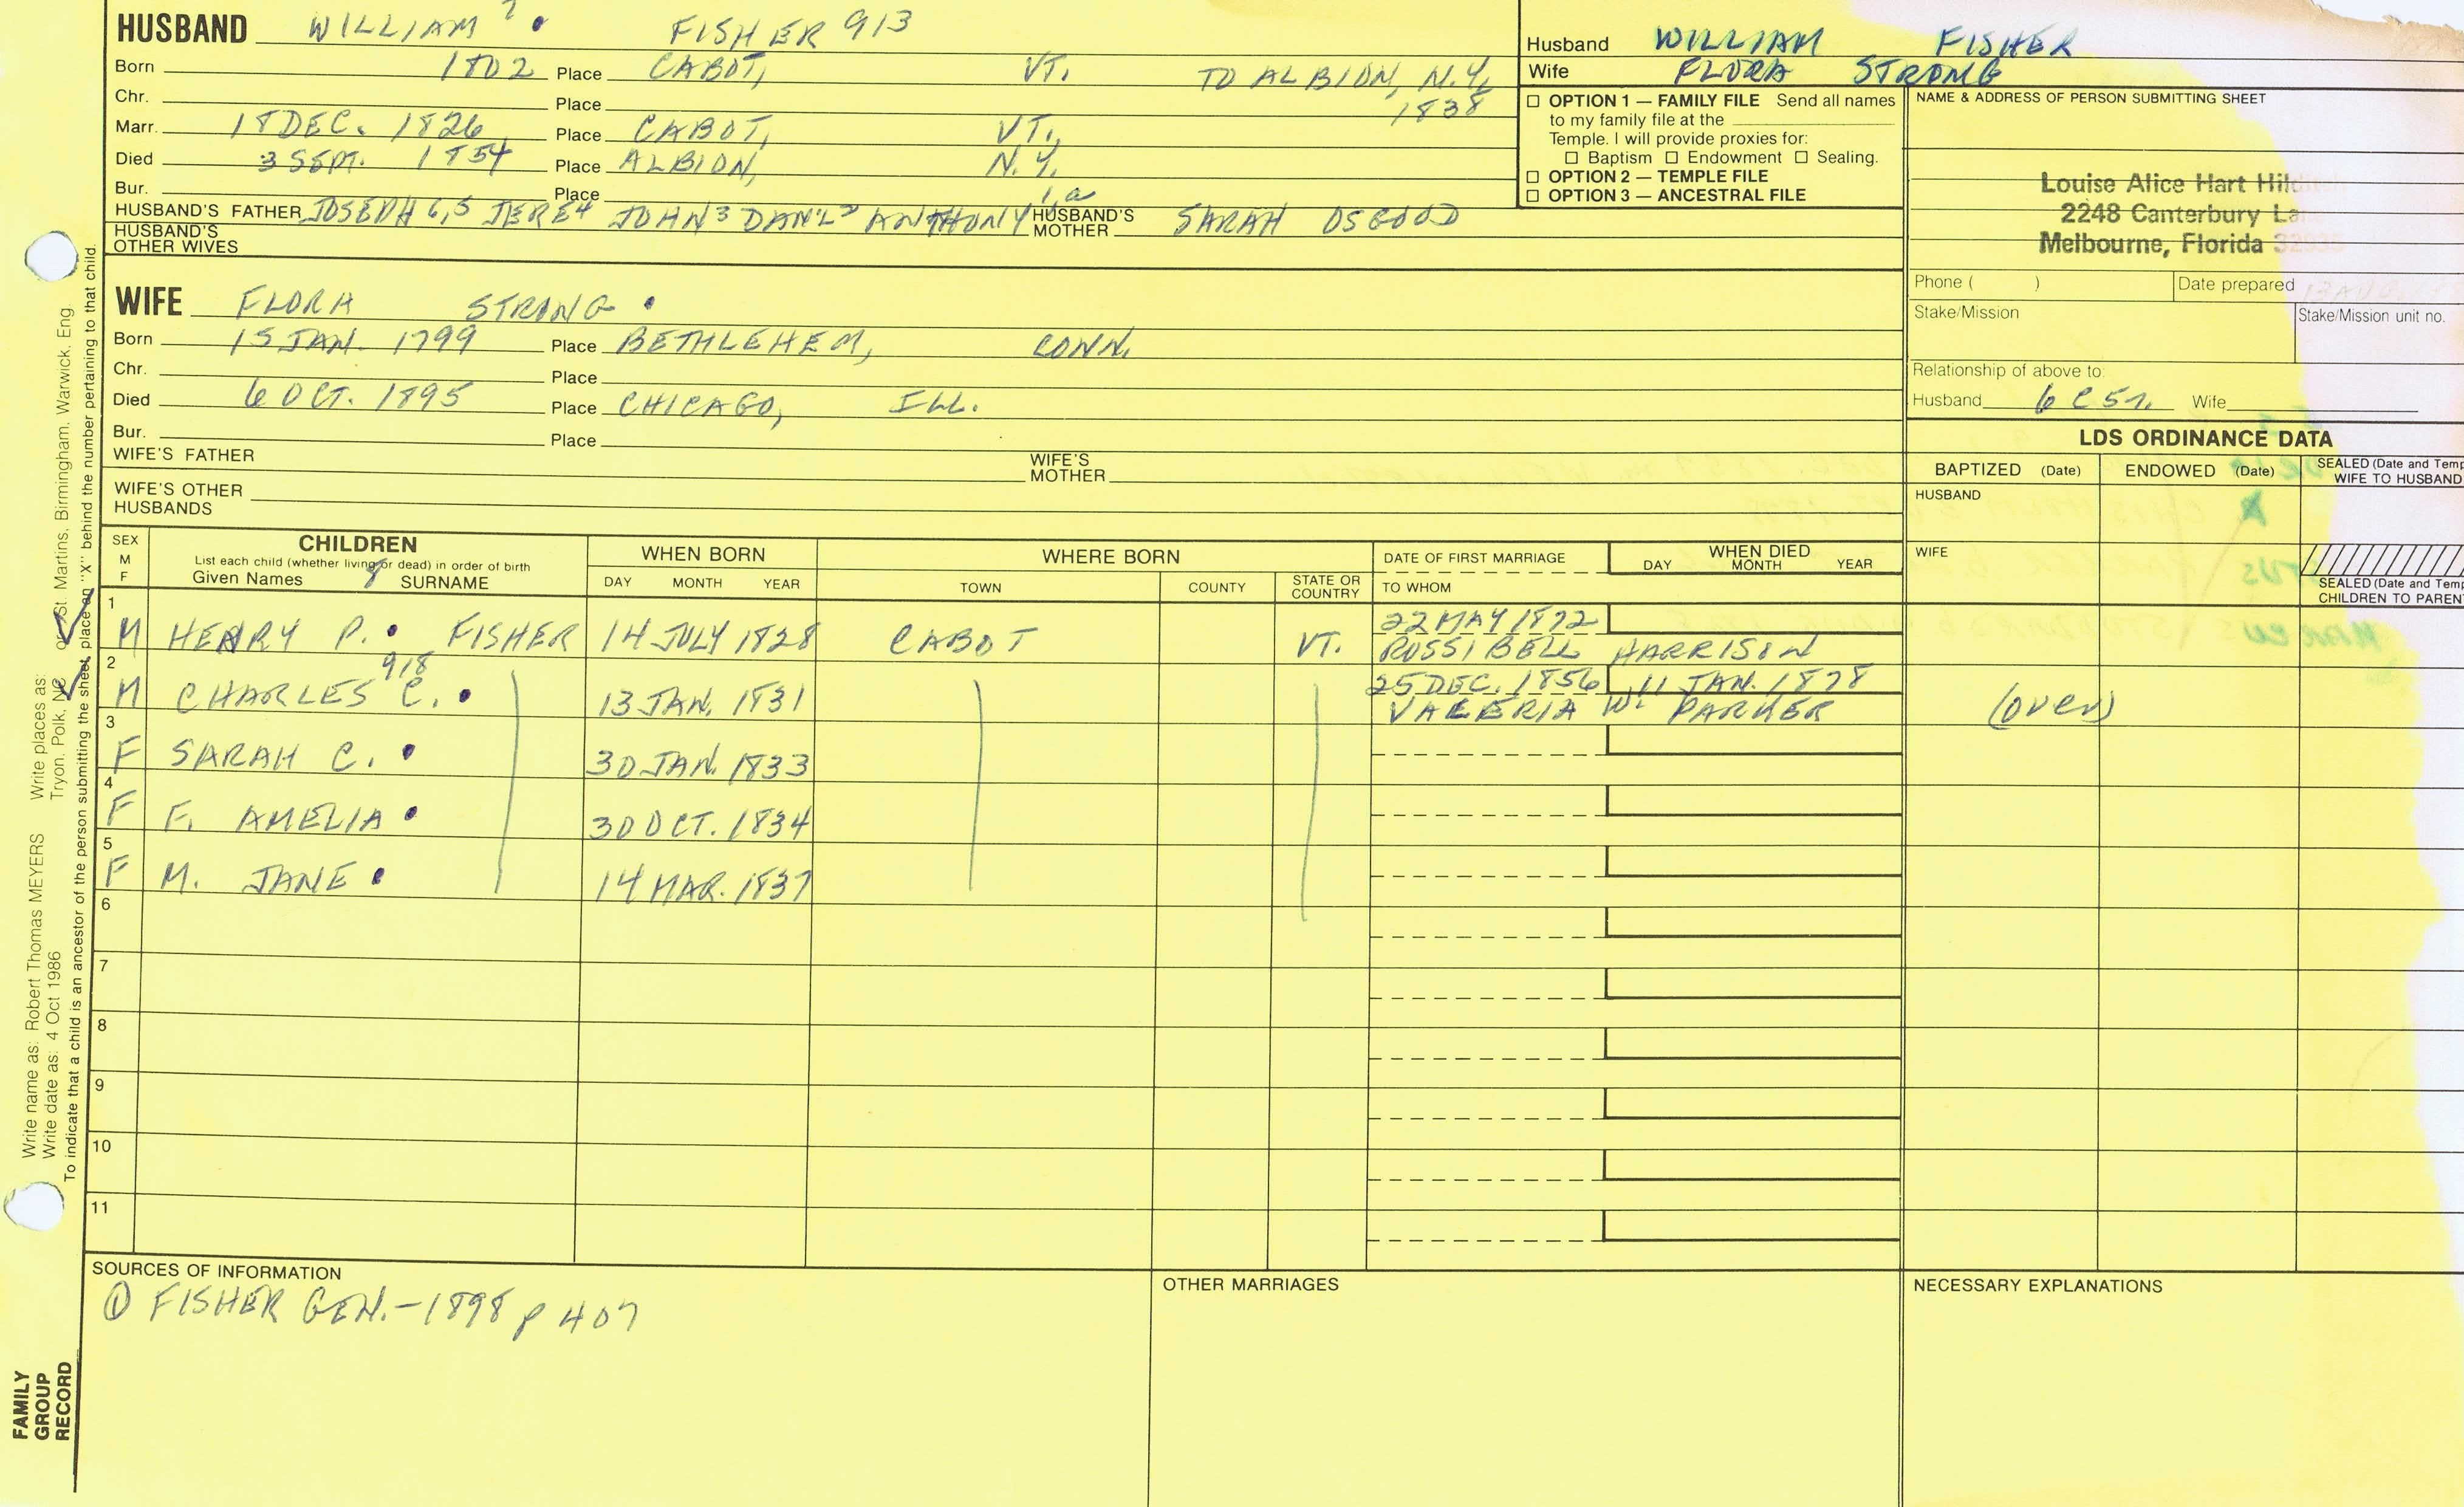 HUSBAND WILLIAM 7 • FISHER 913
Born 1802 Place CABOT, VT. TO ALBION, N.Y. 1838
Chr. Place
Marr. 18 DEC. 1826 Place CABOT, VT.
Died 3 SEPT. 1854 Place ALBION, N.Y.
Bur. Place
HUSBAND'S FATHER JOSEPH 6,5 JERE4 JOHN3 DAN'L2 ANTHONY 1,a HUSBAND'S MOTHER SARAH OSGOOD
HUSBAND'S OTHER WIVES
WIFE FLORA STRONG •
Born 15 JAN. 1799 Place BETHLEHEM, CONN.
Chr. Place
Died 6 OCT. 1895 Place CHICAGO, ILL.
Bur. Place
WIFE'S FATHER WIFE'S MOTHER
WIFE'S OTHER HUSBANDS
Husband WILLIAM FISHER
Wife FLORA STRONG
☐ OPTION 1 — FAMILY FILE Send all names
to my family file at the
Temple. I will provide proxies for:
☐ Baptism ☐ Endowment ☐ Sealing.
☐ OPTION 2 — TEMPLE FILE
☐ OPTION 3 — ANCESTRAL FILE
NAME & ADDRESS OF PERSON SUBMITTING SHEET
Louise Alice Hart
2248 Canterbury
Melbourne, Florida
Phone ( ) Date prepared
Stake/Mission Stake/Mission unit no.
Relationship of above to:
Husband 6 C 5r. Wife
LDS ORDINANCE DATA
BAPTIZED (Date) ENDOWED (Date) SEALED (Date and Temp
WIFE TO HUSBAND
HUSBAND
WIFE
SEALED (Date and Temp
CHILDREN TO PAREN
SEX M F
CHILDREN
List each child (whether living or dead) in order of birth
Given Names 8 SURNAME
WHEN BORN
DAY MONTH YEAR
WHERE BORN
TOWN COUNTY STATE OR COUNTRY
DATE OF FIRST MARRIAGE
TO WHOM
WHEN DIED
DAY MONTH YEAR
1 M HENRY P. • FISHER 14 JULY 1828 CABOT VT. 22 MAY 1872
ROSSIBELL HARRISON
2 M CHARLES C. • 918 13 JAN. 1831 25 DEC. 1856 11 JAN. 1878
VALERIA W. PARKER (over)
3 F SARAH C. • 30 JAN. 1833
4 F F. AMELIA • 30 OCT. 1834
5 F M. JANE • 14 MAR. 1837
6
7
8
9
10
11
SOURCES OF INFORMATION
① FISHER GEN.-1898 p 407
OTHER MARRIAGES
NECESSARY EXPLANATIONS
Write name as: Robert Thomas MEYERS Write places as:
Write date as: 4 Oct 1986 Tryon, Polk, NC or St. Martins, Birmingham, Warwick, Eng.
To indicate that a child is an ancestor of the person submitting the sheet, place an "X" behind the number pertaining to that child.
FAMILY
GROUP
RECORD